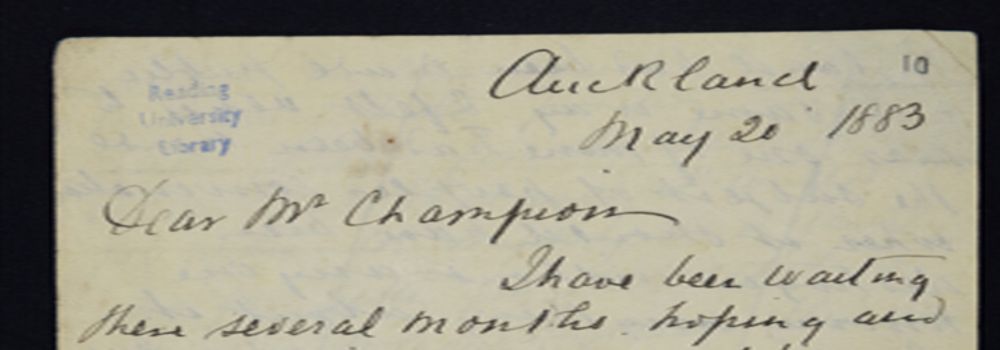 Auckland
10
May 20 1883
Reading
University
Library
Dear Mr Champion
I have been waiting
these several months hoping and